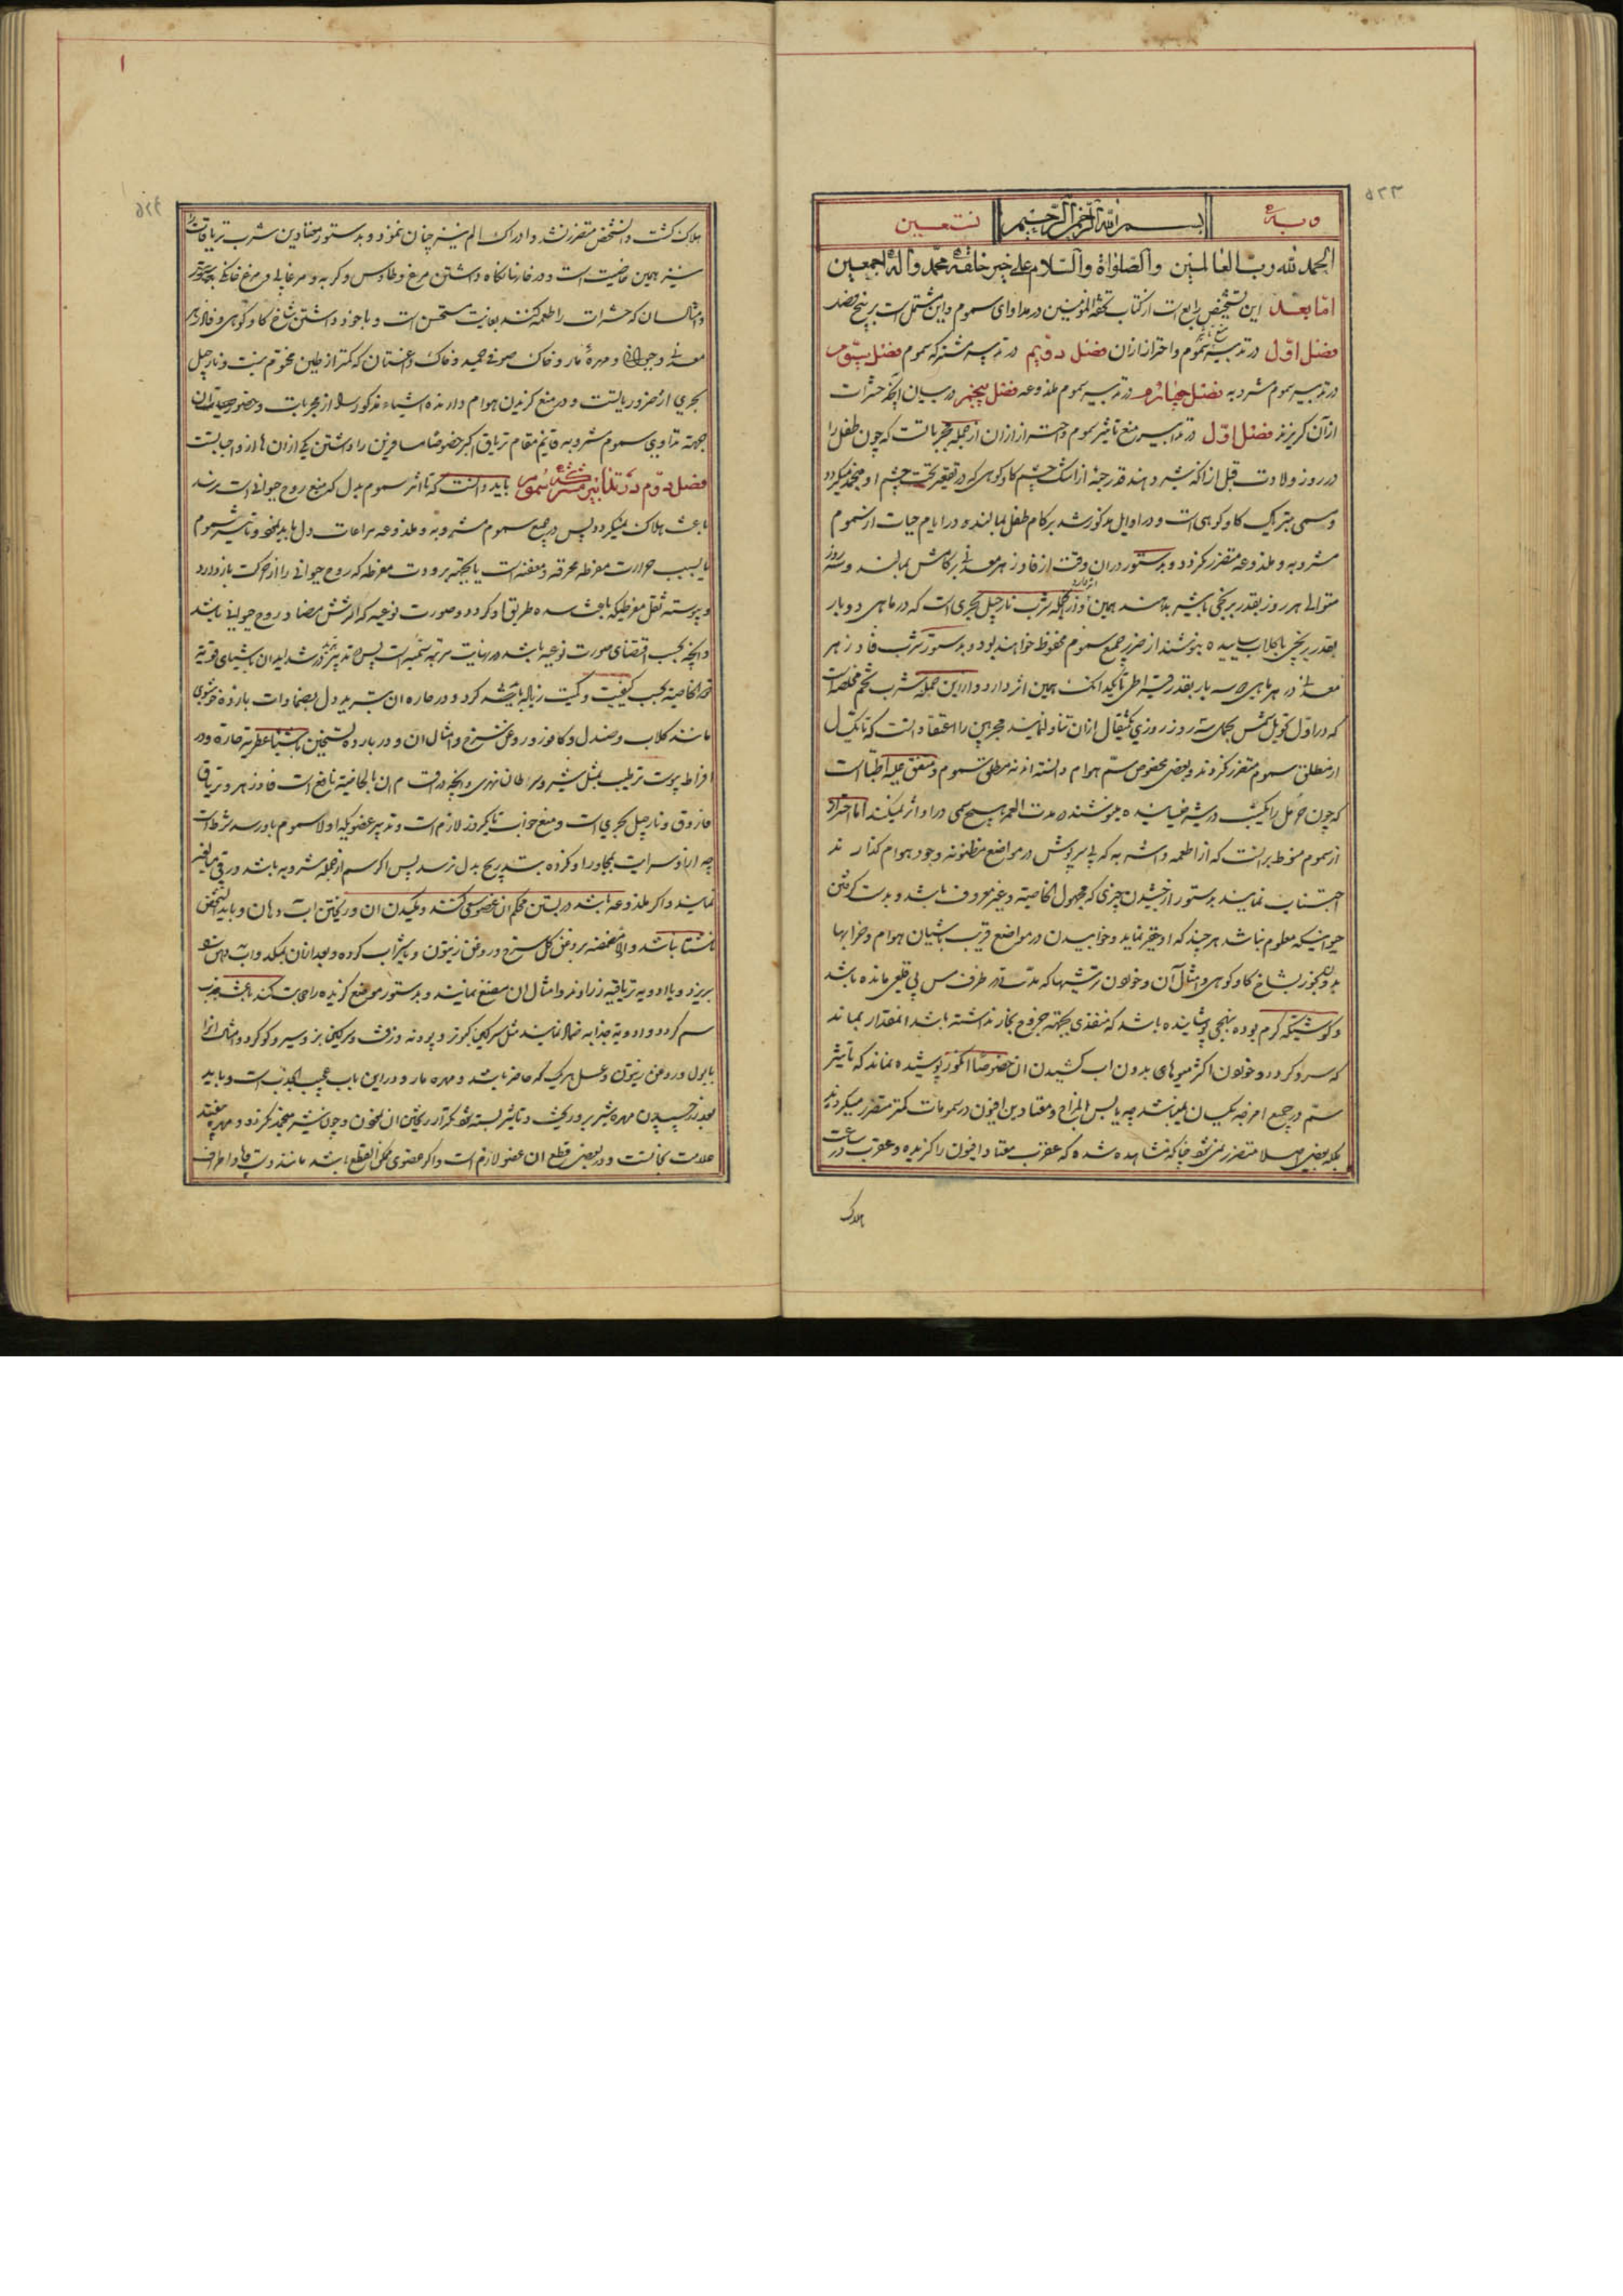 ۵۲۳
وبه
بسم الله الرحمن الرحیم
نستعین
الحمد لله رب العالمین والصلواة والسلام علی خیر خلقه محمد وآله اجمعین
اما بعد این تشخیص رابع است از کتاب تحفة المؤمنین در مداوای سموم و این مشتمل است بر پنج فصل
فصل اول در تدبیر منع تأثیر سموم و احتراز ازان فصل دویم در تدبیر مشترکه سموم فصل سیوم
در تدبیر سموم مشروبه فصل چهارم در تدبیر سموم ملذوعه فصل پنجم در بیان آنچه حشرات
از آن گریزند فصل اول در تدابیر منع تأثیر سموم و احتراز ازان از جمله مجربات است که چون طفل را
در روز ولادت قبل از آنکه شیر دهند قدر حبهٔ از اشک چشم کاو کوهی که در تقعیر تحت چشم او منجمد میگردد
و مسمی بتریاک کاو کوهی است و در اوایل مذکور شد بر کام طفل بمالند در ایام حیات از سموم
مشروبه و ملذوعه متضرر نگردد و بدستور در ان وقت از فادزهر معدنی بر کامش بمالند و سه روز
متوالی هر روز بقدر برنجی با شیر بدهند همین اثر دارد و از جمله شرب نارجیل بحری است که در ماهی دو بار
بقدر برنجی با کلاب ساییده بنوشند از ضرر جمیع سموم محفوظ خواهند بود و بدستور شرب فادزهر
معدنی در هر ماهی سه بار بقدر قیراطی تا یکدانک همین اثر دارد و از این جمله شرب تخم مخلصه است
که در اول تحویل شمس بحمل سه روز روزی یکمثقال ازان تناول نمایند مجربین را اعتقاد آنست که تا یکسال
از مطلق سموم متضرر نکردند و بعضی مخصوص سم هوام دانسته اند نه مطلق سموم و متفق علیه اطباست
که چون حرمل را یکشب در شیر خیسانیده بنوشند در مدت العمر هیچ سمی در او اثر نمیکند اما احتراز
از سموم منوط بر آنست که از اطعمه و اشربه که بی سرپوش در مواضع مظنونه وجود هوام گذارند
اجتناب نمایند و بدستور از چشیدن چیزی که مجهول الخاصیه و غیر معروف باشد و بدست گرفتن
حیوانیکه معلوم نباشد هر چند که او حقیر نماید و خوابیدن در مواضع قریب باشیان هوام و خرابها
بدون بخور بشاخ کاو کوهی و مثال آن و خوردن ترشیها که مدت در ظرف مس بی قلعی مانده باشد
و گوشتیکه گرم بوده بنهجی پوشانیده باشد که منفذی بجهة خروج بخار نداشته باشد و انمقدار بماند
که سرد گردد و خوردن اکثر میوهای بدون اب کشیدن ان خصوصا انگور پوشیده نماند که تأثیر
سم در جمیع امزجه یکسان نمیباشد چه یابس المزاج و معتادین افیون در سمومات کمتر متضرر میگردند
بلکه بعضی اصلا متضرر نمی شود چنانکه مشاهده شده که عقرب معتاد افیون را گزیده و عقرب در ساعت
هلاک
۱
۵۲۴
هلاک گشت و انشخص متضرر نشد و ادراک الم نیز چنان ننمود و بدستور معتادین شرب تریاقات را
نیز همین خاصیت است و در خارنا نگاه داشتن مرغ و طاوس و گربه و مرغابی و مرغ خانگی
و امثال ان که حشرات را طعمه کنند بغایت مستحسن است و با خود داشتن شاخ کاو کوهی و فادزهر
معدنی و حیوانی و مهرهٔ مار و خاک صوفی حمید و خاک داغستان که کمتر از طین مختوم نیست و نارجیل
بحری از ضروریاتست و در منع گزیدن هوام دارنده اشیاء مذکوره را از مجربات و حضور
جهة تداوی سموم مشروبه قایم مقام تریاق اکبر خصوصا مسافرین را داشتن یکی از ان ها از واجباتست
فصل دوم در تدابیر مشترکه سموم باید دانست که تا اثر سموم بدل که منبع روح حیوانی است نرسد
باعث هلاک نمیگردد پس در جمیع سموم مشروبه و ملذوعه مراعات دل باید نمود و تأثیر سموم
یا بسبب حرارت مفرطه محرقه و معفنه است یا بجهة برودت مفرطه که روح حیوانی را از حرکت بازدارد
و یبوسته ثقل مفرطیکه باعث سده طریق او گردد و صورت نوعیه که اثرش مضاد روح حیوانی باشد
و آنچه بحسب اقتضای صورت نوعیه باشد در نهایت مرتبه سمیه است پس تدبیر در شداید ان باشیای قویة
الخاصیه بحسب کیفیت و کمیت رزیاله باعث گردد و در حاره ان تبرید دل بضمادات بارده خوشبوی
مانند کلاب و صندل و کافور و روغن گل سرخ و امثال ان و در بارده تسخین باشیاء عطریه حاره و در
افراط یبوست ترطیب بمثل شیر و سرطان نهری و آنچه در اقسام ان بالخاصیه نافع است فادزهر و تریاق
فاروق و نارجیل بحری است و منع خواب تا یکروز لازم است و تدبیر عضویکه اولا سموم باو رسد شرط است
چه از او سرایت بمجاور او کرده بتدریج بدل نرسد پس اگر سم از جمله مشروبه باشد در قی مبالغه
نمایند و اگر ملذوعه باشد در بستن محکم ان عضو سعی کنند و مکیدن ان و ریختن اب دهان و باید انشخص
ناشتا نباشد و الا مضمضه بروغن گل سرخ و روغن زیتون و یا شراب کرده و بعد از ان بمکد و اب دهن
بریزد و با ادویه تریاقیه زراوند و امثال ان مضغ نمایند و بدستور موضع گزیده را حجامت کنند باعث جذب
سم گردد و ادویه جذابه ضماد نمایند مثل سرگین کبوتر و پودنه و زفت و سرگین بز و سیر و گوگرد و امثال انرا
با بول و روغن زیتون و عسل هر یک که حاضر باشد و مهره مار و در این باب عجیب الجذب است و باید
بعد از چسپیدن مهره شیر برو ریخت و تا شیر بسته شود مکرر ریختن ان نمودن و چون شیر منجمد نگردد و مهره بیفتد
علامت نجاتست و در بعضی قطع ان عضو لازم است و اگر عضوی ممکن القطع باشد مانند دست و پا و اطراف